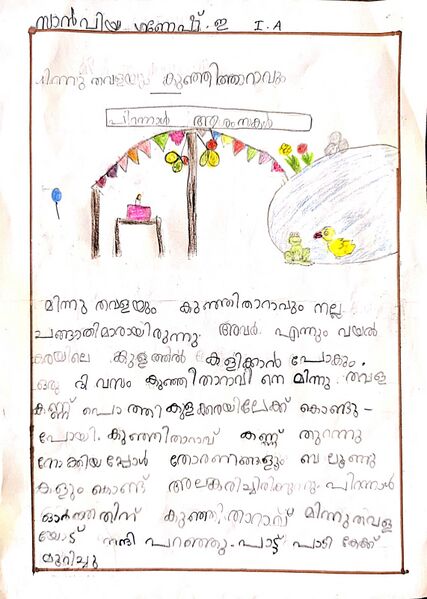 സാൻവിയ ഗണേഷ്. ഇ I. A
മിന്നു തവളയും കുഞ്ഞിത്താറാവും
പിറന്നാൾ ആശംസകൾ
മിന്നു തവളയും കുഞ്ഞിതാറാവും നല്ല
ചങ്ങാതിമാരായിരുന്നു. അവർ എന്നും വയൽ
കരയിലെ കുളത്തിൽ കളിക്കാൻ പോകും.
ഒരു ദിവസം കുഞ്ഞിതാറാവി നെ മിന്നു തവള
കണ്ണ് പൊത്തി കുളക്കരയിലേക്ക് കൊണ്ടു -
പോയി. കുഞ്ഞിതാറാവ് കണ്ണ് തുറന്നു
നോക്കിയപ്പോൾ തോരണങ്ങളും ബലൂണു
കളും കൊണ്ട് അലങ്കരിച്ചിരിക്കുന്നു. പിറന്നാൾ
ഓർത്തതിന് കുഞ്ഞിതാറാവ് മിന്നുതവള
യോട് നന്ദി പറഞ്ഞു. പാട്ട് പാടി കേക്ക്
മുറിച്ചു